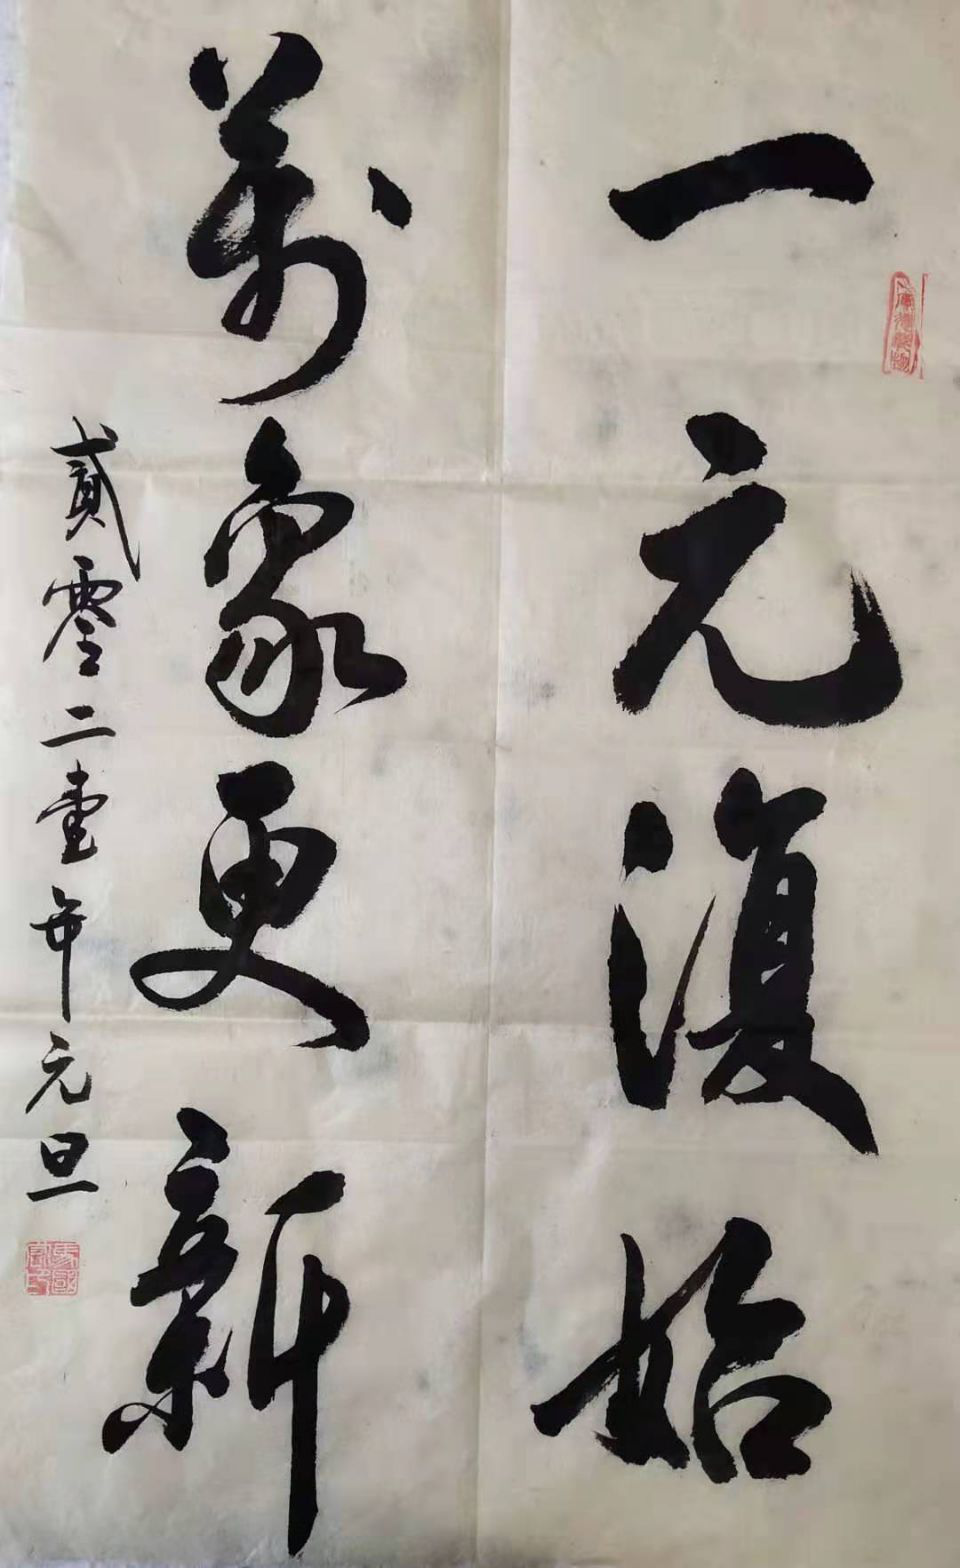 一元復始
萬象更新
貳零二壹年元旦